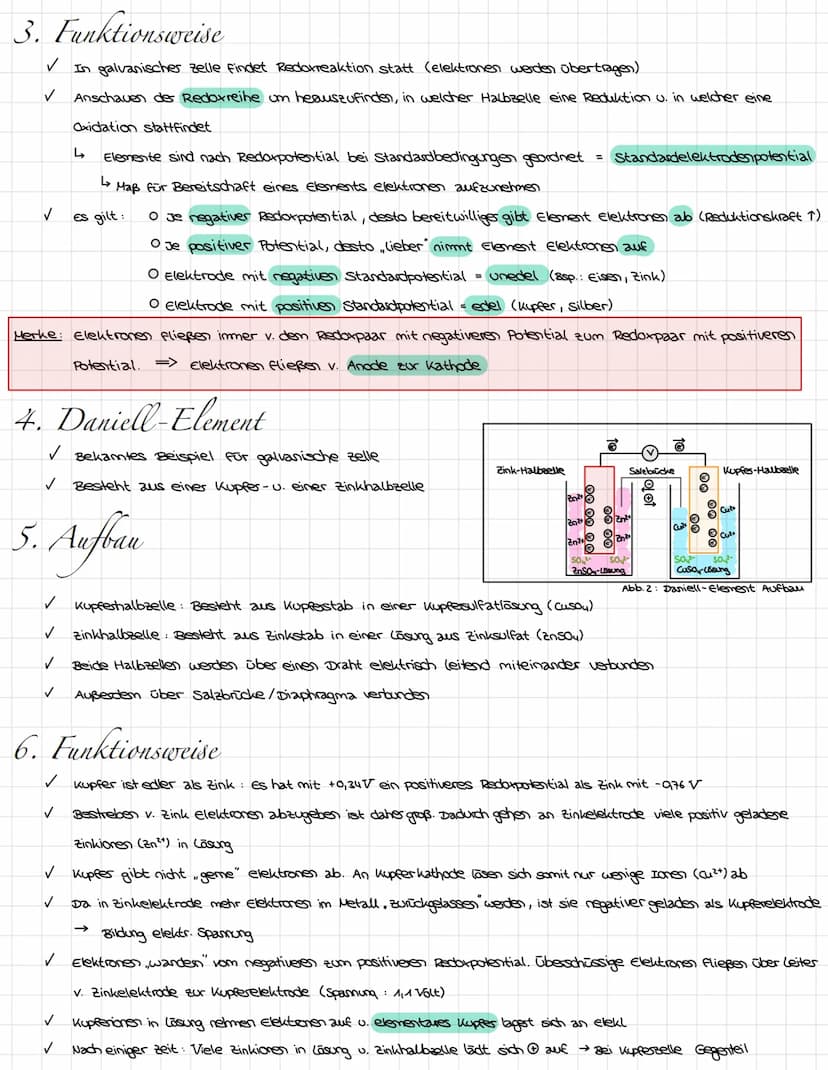 3. Funktionsweise
✓ In galvanischer Zelle findet Redoxreaktion statt (Elektronen werden übertragen)
✓ Anschauen der Redoxreihe um heauszufinden, in welcher Halbzelle eine Reduktion u. in welcher eine
Oxidation stattfindet
↳ Elemente sind nach Redoxpotential bei Standardbedingungen geordnet = Standardelektrodenpotential
↳ Maß für Bereitschaft eines Elements Elektronen aufzunehmen
✓ Es gilt: o Je negativer Redoxpotential, desto bereitwilliger gibt Element Elektronen ab (Reduktionskraft ↑)
o Je positiver Potential, desto „lieber" nimmt Element Elektronen auf
o Elektrode mit negativen Standardpotential = unedel (Bsp.: Eisen, Zink)
o Elektrode mit positiven Standardpotential = edel (Kupfer, Silber)
Merke: Elektronen fließen immer v. dem Redoxpaar mit negativeren Potential zum Redoxpaar mit positiveren
Potential. => Elektronen fließen v. Anode zur Kathode
4. Daniell-Element
✓ Bekanntes Beispiel für galvanische Zelle
✓ Besteht aus einer Kupfer- u. einer Zinkhalbzelle
Zink-Halbzelle Salzbrücke Kupfer-Halbzelle
e⁻ V e⁻
⊖
⊕
Zn²⁺
Zn²⁺ Zn²⁺
Zn²⁺ Zn²⁺
Cu²⁺ Cu²⁺
Cu²⁺
SO₄²⁻ SO₄²⁻ SO₄²⁻ SO₄²⁻
ZnSO₄-Lösung CuSO₄-Lösung
Abb. 2: Daniell-Element Aufbau
5. Aufbau
✓ Kupferhalbzelle: Besteht aus Kupferstab in einer Kupfersulfatlösung (CuSO₄)
✓ Zinkhalbzelle: Besteht aus Zinkstab in einer Lösung aus Zinksulfat (ZnSO₄)
✓ Beide Halbzellen werden über einen Draht elektrisch leitend miteinander verbunden
✓ Außerdem über Salzbrücke/Diaphragma verbunden
6. Funktionsweise
✓ Kupfer ist edler als Zink: Es hat mit +0,34V ein positiveres Redoxpotential als Zink mit -0,76 V
✓ Bestreben v. Zink Elektronen abzugeben ist daher groß. Dadurch gehen an Zinkelektrode viele positiv geladene
Zinkionen (Zn²⁺) in Lösung
✓ Kupfer gibt nicht „gerne" Elektronen ab. An Kupferkathode lösen sich somit nur wenige Ionen (Cu²⁺) ab
✓ Da in Zinkelektrode mehr Elektronen im Metall „zurückgelassen" werden, ist sie negativer geladen als Kupferelektrode
→ Bildung elektr. Spannung
✓ Elektronen „wandern" vom negativeren zum positiveren Redoxpotential. Überschüssige Elektronen fließen über Leiter
v. Zinkelektrode zur Kupferelektrode (Spannung: 1,1 Volt)
✓ Kupferionen in Lösung nehmen Elektronen auf u. elementares Kupfer lagert sich an Elekt.
✓ Nach einiger Zeit: Viele Zinkionen in Lösung u. Zinkhalbzelle lädt sich ⊕ auf → Bei Kupferzelle Gegenteil